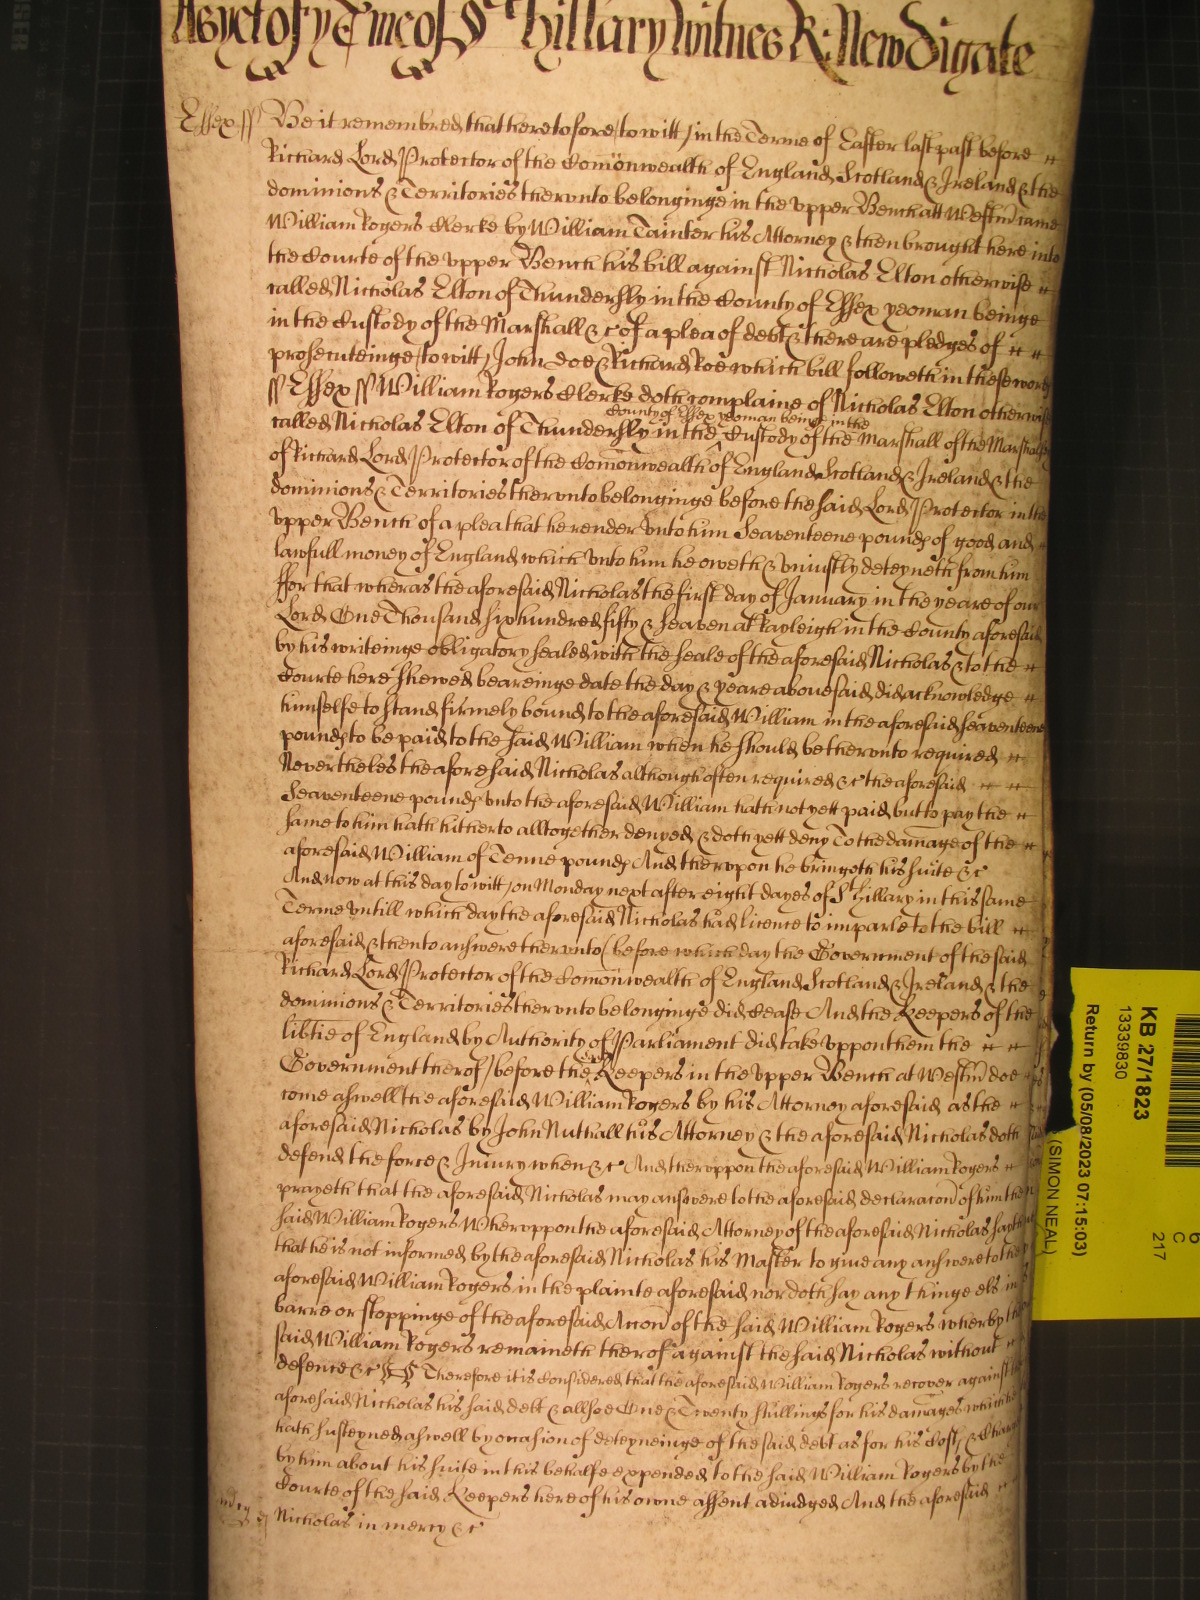 As yet of ye Tme of St Hillary Witnes R: Newdigate
Essex ss Be it remembred that heretofore (to witt) in the Terme of Easter last past before
Richard Lord Protector of the Comonwealth of England Scotland & Ireland & the
dominions & Territories thervnto belonginge in the vpper Bench att Westm came
William Rogers Clerke by William Tainter his Attorney & then brought here into
the Courte of the vpper Bench his bill against Nicholas Elton otherwise
called Nicholas Elton of Thundersly in the County of Essex yeoman beinge
in the Custody of the Marshall &c of a plea of debt & there are pledges of
prosecuteinge (to witt) John Doe & Richard Roe which bill followeth in these words
ss Essex ss William Rogers Clerke doth complaine of Nicholas Elton otherwise
County of Essex yeoman beinge in the
called Nicholas Elton of Thundersly in the Custody of the Marshall of the Marshalsy
of Richard Lord Protector of the Comonwealth of England Scotland & Ireland & the
dominions & Territories thervnto belonginge before the said Lord Protector in the
vpper Bench of a plea that he render vnto him Seaventeene pounds of good and
lawfull money of England which vnto him he oweth & vniustly deteyneth from him
ffor that wheras the aforesaid Nicholas the first day of January in the yeare of our
Lord One Thousand six hundred fifty & seaven at Rayleigh in the County aforesaid
by his writeinge obligatory sealed with the seale of the aforesaid Nicholas & to the
Courte here shewed beareinge date the day & yeare abouesaid did acknowledge
himselfe to stand firmely bound to the aforesaid William in the aforesaid seaventeene
pounds to be paid to the said William when he should be thervnto required
Nevertheles the aforesaid Nicholas although often required &c the aforesaid
Seaventeene pounds vnto the aforesaid William hath not yett paid but to pay the
same to him hath hitherto alltogether denyed & doth yett deny To the damage of the
aforesaid William of Tenne pounds And thervpon he bringeth his suite &c
And now at this day to witt, on Monday next after eight dayes of St Hillary in this same
Terme vntill which day the aforesaid Nicholas had licence to imparle to the bill
aforesaid & then to answere thervnto (before which day the Government of the said
Richard Lord Protector of the Comonwealth of England Scotland & Ireland & the
dominions & Territories thervnto belonginge did cease And the Keepers of the
libtie of England by Authority of Parliament did take vppon them the
Government therof) before the Keepers in the vpper Bench at Westm doe
come aswell the aforesaid William Rogers by his Attorney aforesaid as the
aforesaid Nicholas by John Nuthall his Attorney & the aforesaid Nicholas doth
defend the force & Iniury when &c And thervppon the aforesaid William Rogers
prayeth that the aforesaid Nicholas may answere to the aforesaid declaracon of him the
said William Rogers Whervppon the aforesaid Attorney of the aforesaid Nicholas sayth
that he is not informed by the aforesaid Nicholas his Master to giue any answere to the
aforesaid William Rogers in the plainte aforesaid nor doth say any thinge els in
barre or stoppinge of the aforesaid Accon of the said William Rogers wherby the
said William Rogers remaineth therof against the said Nicholas without
defence &c Therefore it is considered that the aforesaid William Rogers recover against the
aforesaid Nicholas his said debt & allsoe One & Twenty shillings for his damages which he
hath susteyned aswell by occasion of deteyneinge of the said debt as for his Costs & Charges
by him about his suite in this behalfe expended to the said William Rogers by the
Courte of the said Keepers here of his owne assent adiudged And the aforesaid
Nicholas in mercy &c
KB 27/1823
13339830
Return by (05/08/2023 07:15:03)
(SIMON NEAL)
6
C
217